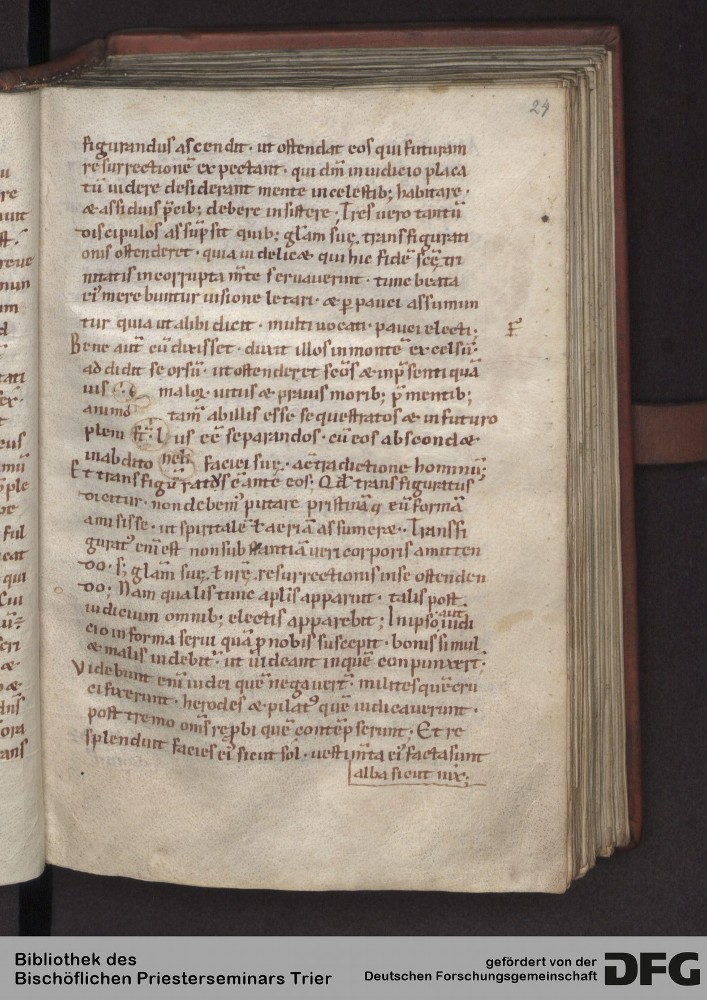 24
figurandus ascendit · ut ostendat eos qui futuram
resurrectionē expectant · qui dm̄ in iudicio placa
tū uidere desiderant mente in celestib; habitare ·
& assiduis p̄cib; debere insistere ; Tres uero tantū
discipulos assūpsit quib; gl̄am suę transfigurati
onis ostenderet · quia uidelic& qui hic fidē scę tri
nitatis incorrupta m̄te seruauerint · tunc beata
ei' merebuntur uisione letari · & pauci assumun
tur quia ut alibi dicit · multi uocati · pauci electi ;
Bene aut̄ cū dixisset · duxit illos in montē excelsū
addidit seorsū · ut ostenderet scōs & inp̄senti quā
uis malor uitiis & prauis morib; p̄mentib;
animo tam̄ ab illis esse sequestratos & in futuro
pleni us eē separandos · cū eos abscond&
in abdito faciei suę · a c̄tradictione hominū ;
Et transfiguratus ē ante eos ; Qd̄ transfiguratus
dicitur · non debem' putare pristinā eū formā
amisisse · ut spiritale ł aeriā assumere · Transfi
gurat' eni est non substantiā ueri corporis amitten
do · s; gl̄am suę ł nr̄ę resurrectionis in se ostenden
do ; Nam qualis tunc apl̄is apparuit · talis post
iudicium omnib; electis apparebit ; In ipso aut̄ iudi
cio in forma serui quā p nobis suscepit · bonis simul
& malis uidebit' · ut uideant in quē conpunxert ·
Videbunt eni iudei quē negauert · milites quē cru
cifixerunt · herodes & pilat' quē iudicauerunt ·
postremo om̄s reprobi quē contēpserunt ; Et re
splenduit facies ei' sicut sol · uestim̄ta ei' facta sunt
alba sicut nix ;
Bibliothek des
Bischöflichen Priesterseminars Trier
gefördert von der
Deutschen Forschungsgemeinschaft
DFG